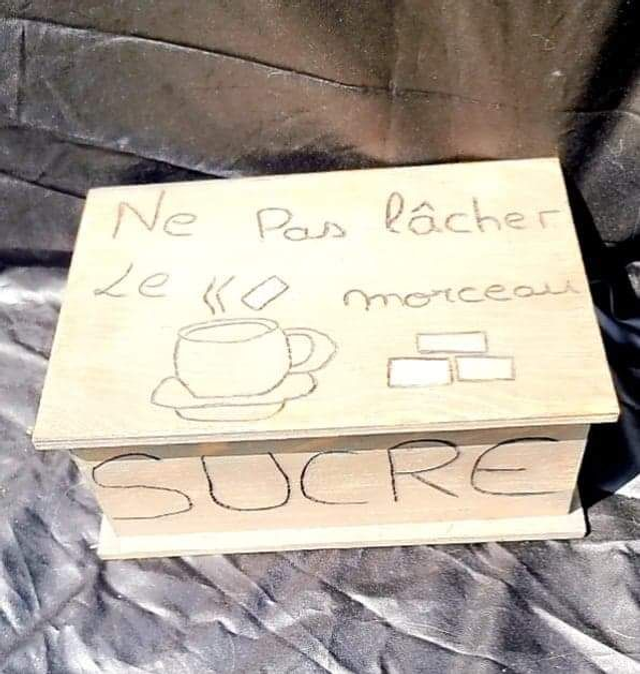 Ne Pas lâcher
Le morceau
SUCRE